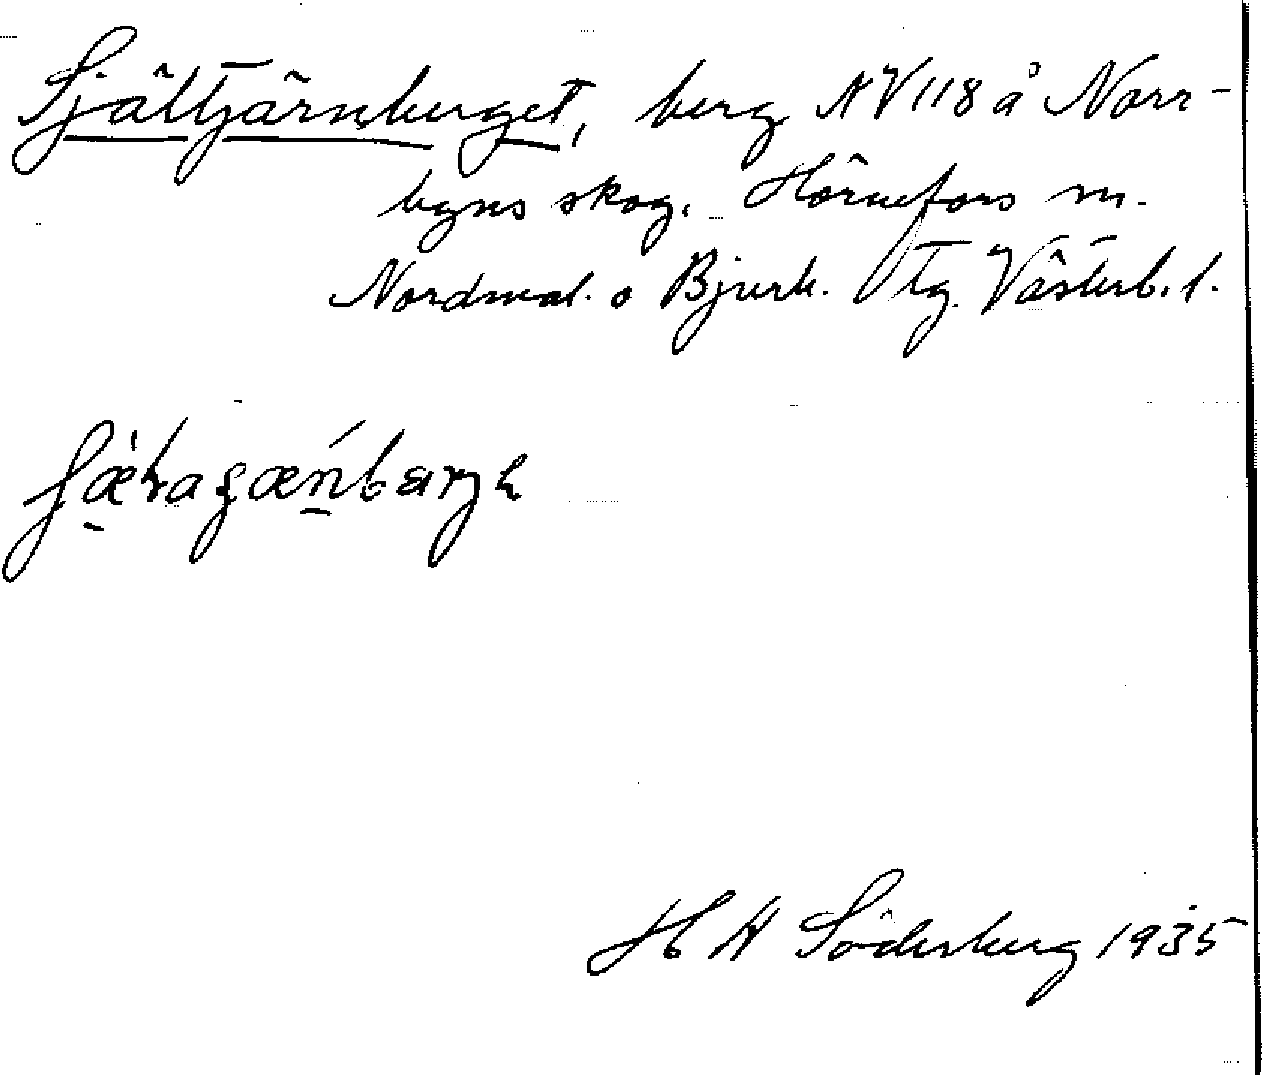 Själtjärnberget, berg NV 118 å Norr-
byns skog. Hörnefors m.
Nordmal. o Bjurh. Tg. Västerb. l.
H A Söderberg 1935